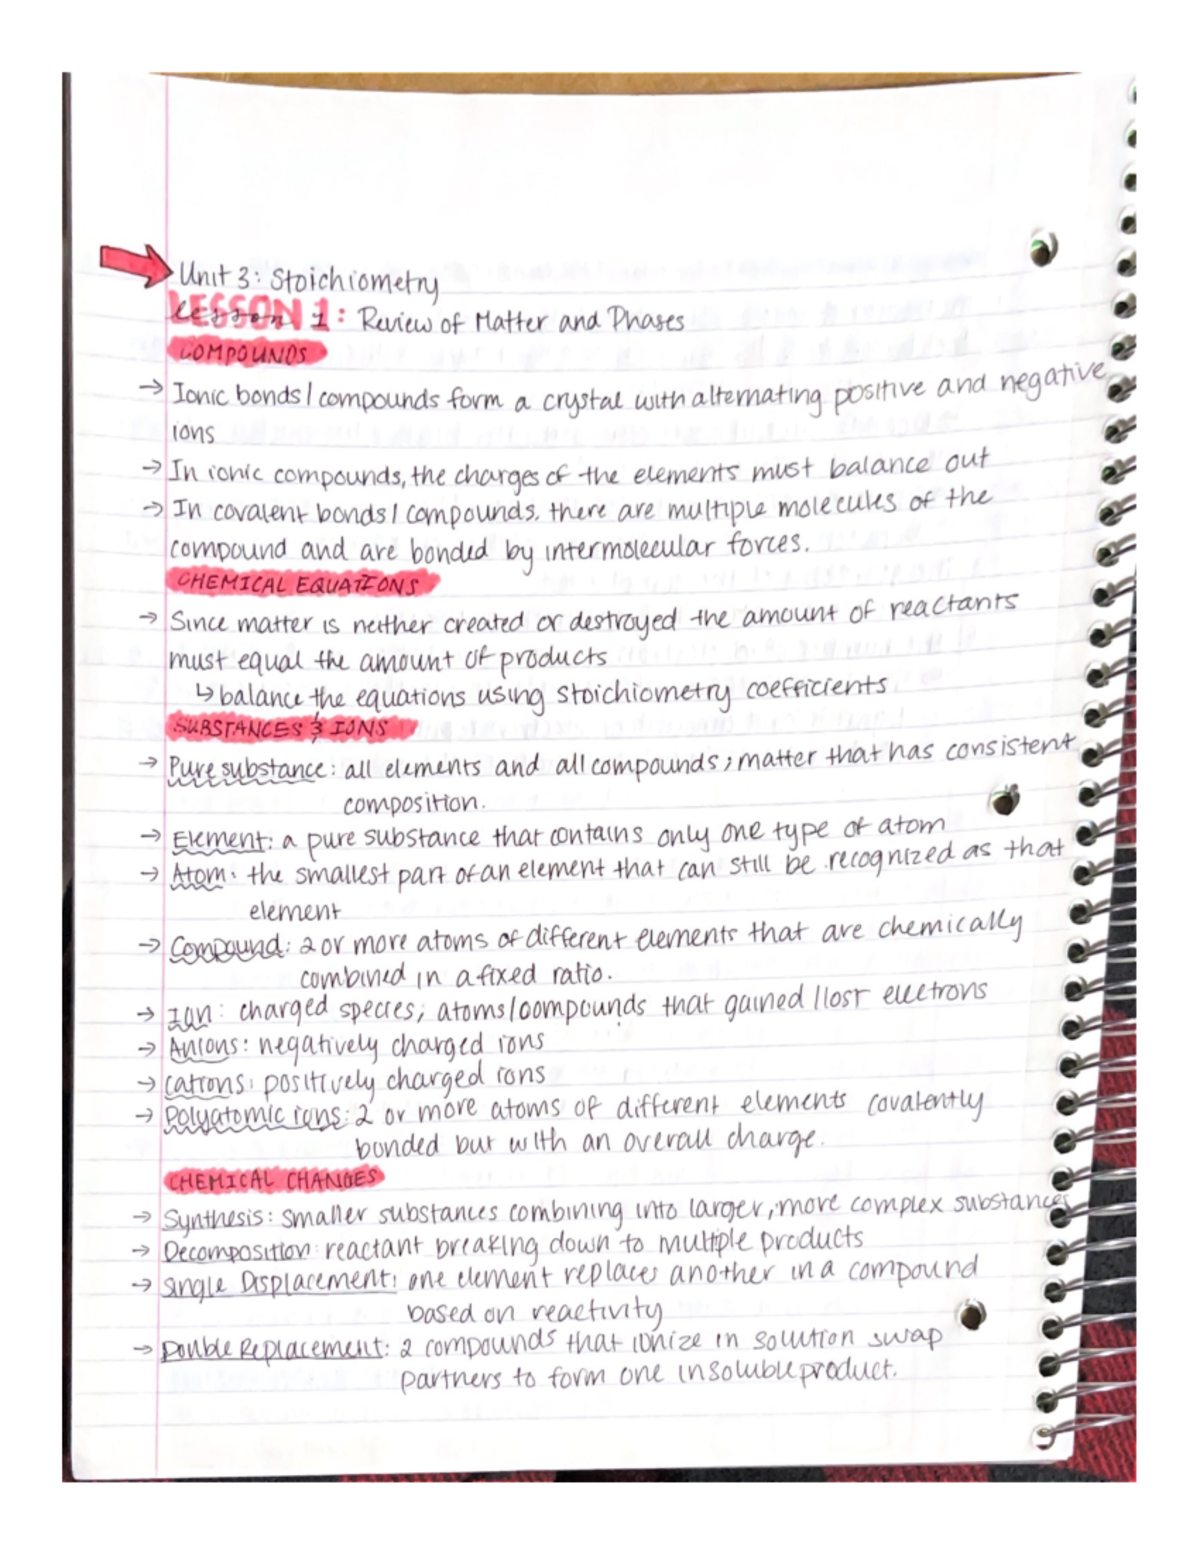 Unit 3: Stoichiometry
LESSON 1: Review of Matter and Phases
COMPOUNDS
→ Ionic bonds/compounds form a crystal with alternating positive and negative
ions
→ In ionic compounds, the charges of the elements must balance out
→ In covalent bonds/compounds, there are multiple molecules of the
compound and are bonded by intermolecular forces.
CHEMICAL EQUATIONS
→ Since matter is neither created or destroyed the amount of reactants
must equal the amount of products
↳ balance the equations using stoichiometry coefficients
SUBSTANCES & IONS
→ Pure substance: all elements and all compounds; matter that has consistent
composition.
→ Element: a pure substance that contains only one type of atom
→ Atom: the smallest part of an element that can still be recognized as that
element
→ Compound: 2 or more atoms of different elements that are chemically
combined in a fixed ratio.
→ Ion: charged species; atoms/compounds that gained/lost electrons
→ Anions: negatively charged ions
→ Cations: positively charged ions
→ Polyatomic ions: 2 or more atoms of different elements covalently
bonded but with an overall charge.
CHEMICAL CHANGES
→ Synthesis: smaller substances combining into larger, more complex substances
→ Decomposition: reactant breaking down to multiple products
→ Single Displacement: one element replaces another in a compound
based on reactivity
→ Double Replacement: 2 compounds that ionize in solution swap
partners to form one insoluble product.